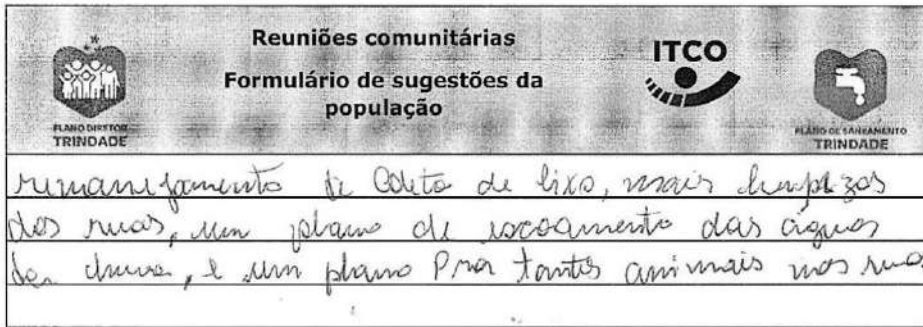 Reuniões comunitárias
ITCO
Formulário de sugestões da
população
PLANO DIRETOR
TRINDADE
PLANO DE SANEAMENTO
TRINDADE
remanejamento de Coleta de lixo, mais limpezas
das ruas, um plano de escoamento das águas
da chuva, e um plano Pra tantos animais nas ruas